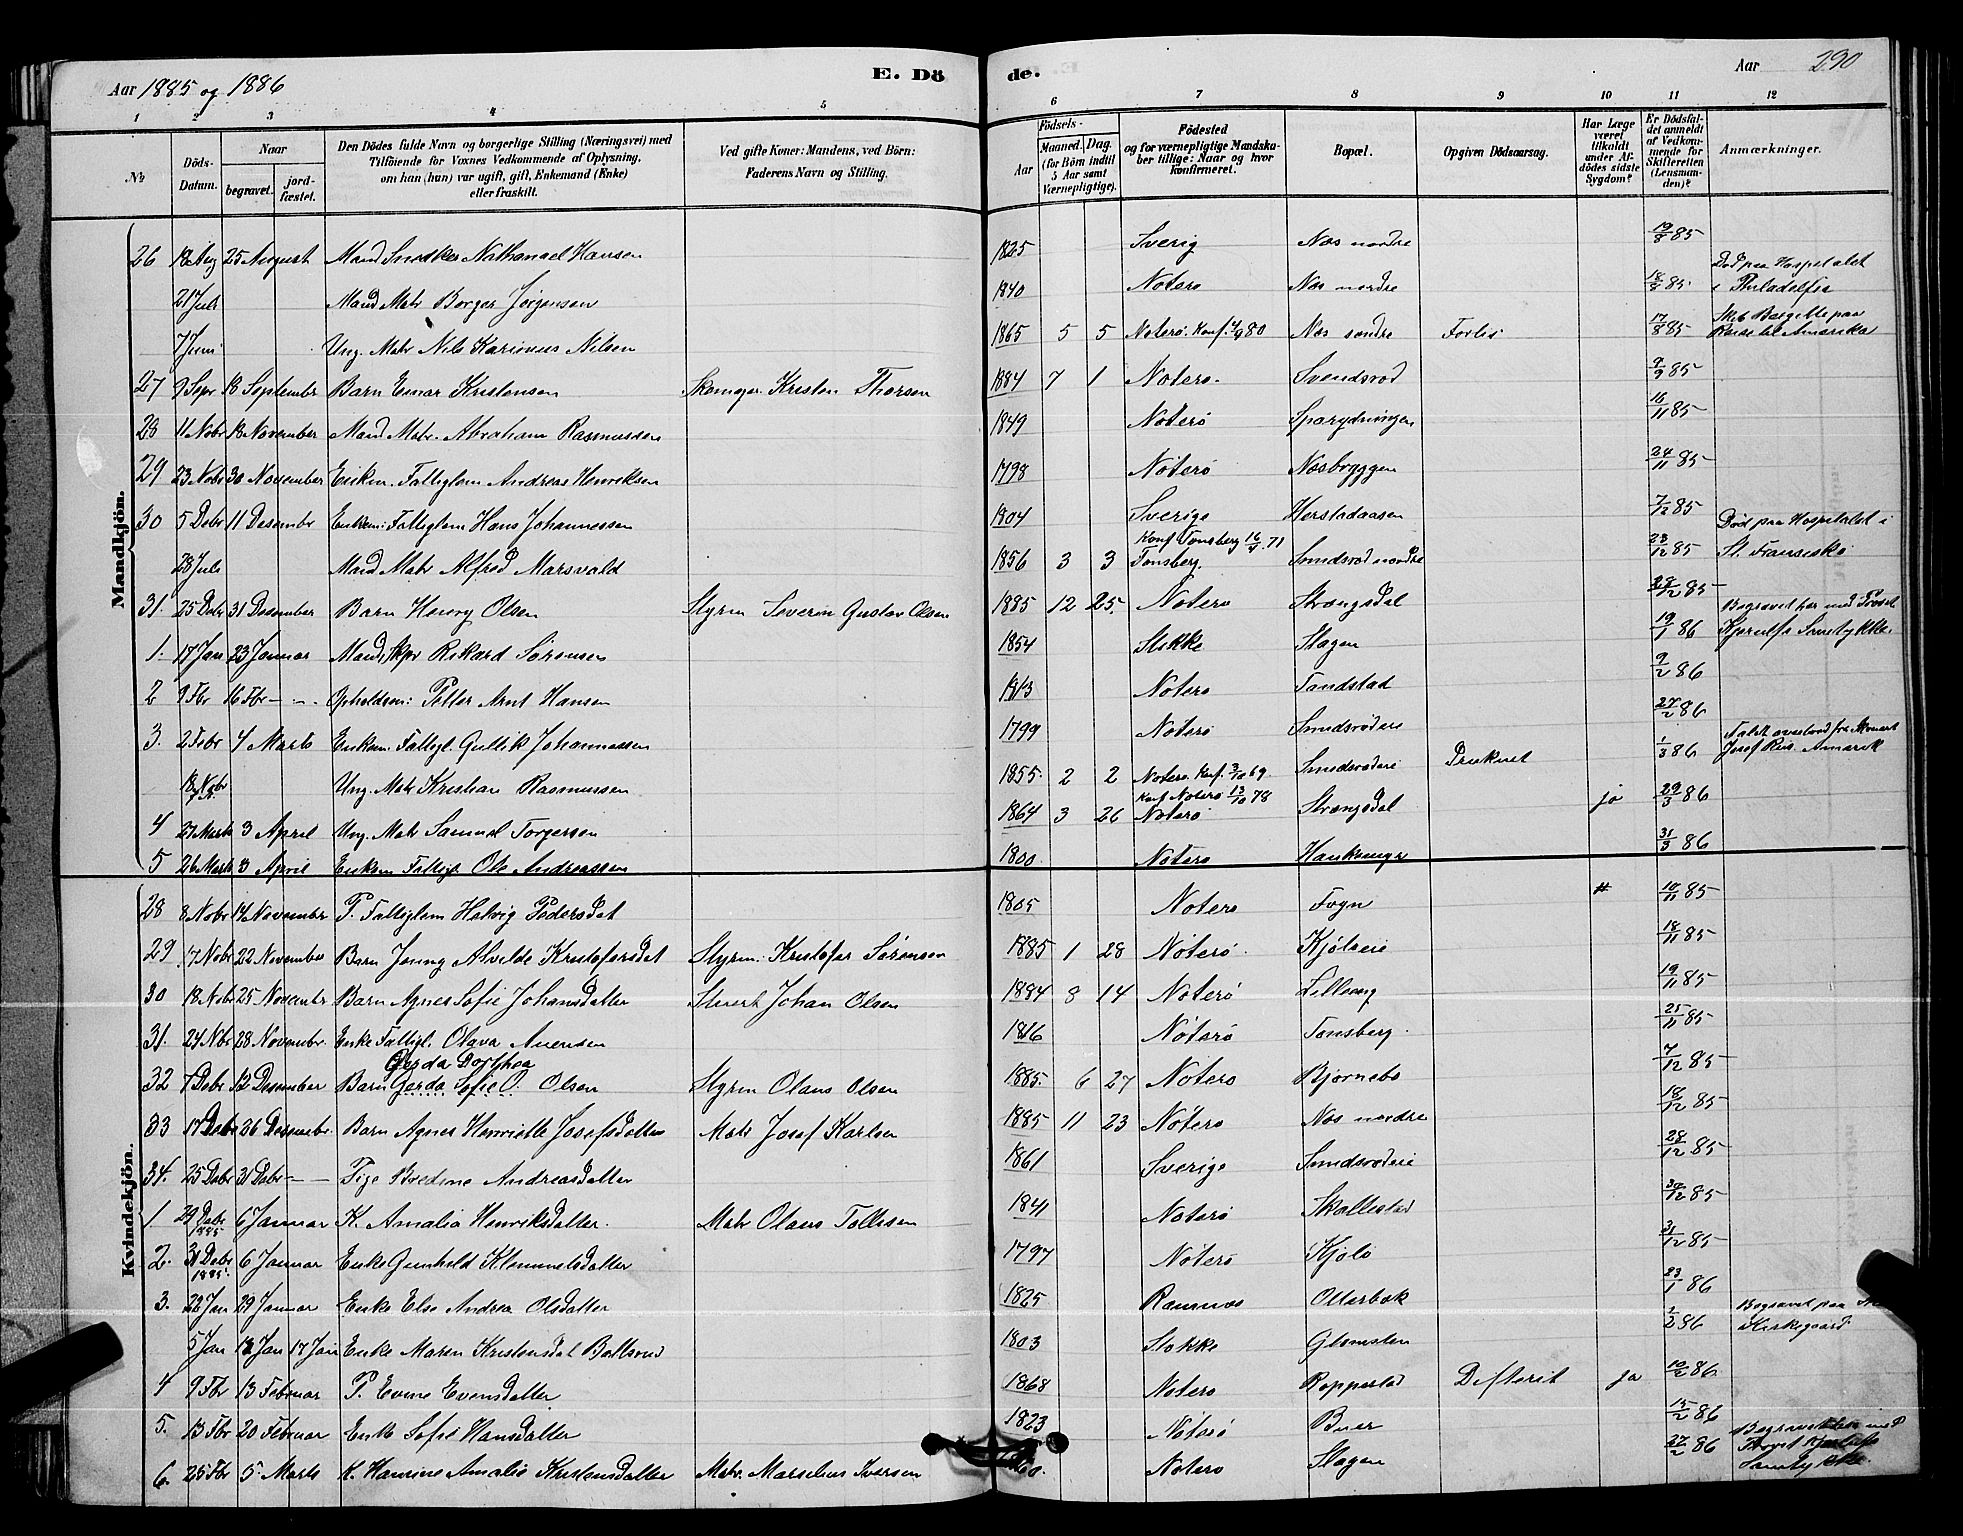 Aar 1885 og 1886 E. Dö
de. Aar 290
1 2 3 4 5
6 7 8 9 10 11 12
No
Döds-Datum.
Naar
begravet. jordfæstet.
Den Dödes fulde Navn og borgerlige Stilling (Næringsvei) med
Tilföiende for Voxnes Vedkommende af Oplysning,
om han (hun) var ugift, gift, Enkemand (Enke)
eller fraskilt.
Ved gifte Koner: Mandens, ved Börn:
Faderens Navn og Stilling.
Födsels-
Aar Maaned. Dag.
(for Börn indtil
5 Aar samt
Værnepligtige).
Födested
og for værnepligtige Mandskaber tillige: Naar og hvor
konfirmeret.
Bopæl.
Opgiven Dödsaarsag.
Har Læge
været
tilkaldt
under Afdödes sidste
Sygdom?
Er Dödsfaldet anmeldt
af Vedkommende for
Skifteretten
(Lensmanden)?
Anmærkninger.
Mandkjön.
26 18 Aug 25 August Mand Snedker Nathanael Hansen 1825 Sverig Nes nordre 19/8 85
21 Juli Mand Matr Borger Jörgensen 1840 Noterø Nes nordre 18/8 85 Død paa Hospitalet i Philadelfia
7 Juni Ung. Matr Nils Karinius Nilsen 1865 5 5 Noterø. Konf. 80 Nes søndre Forlis 17/8 85 Reise til Amerika
27 9 Sepr 18 September Barn Einar Kristensen Skomager Kristen Thorsen 1884 7 1 Noterø. Svendsrød 9/9 85
28 11 Nobr 18 November Mand Matr. Abraham Rasmussen 1849 Nøterø 16/11 85
29 23 Nobr 30 November Enkem. Fattiglem Andreas Henriksen 1798 Nøterø Nesbryggen 24/11 85
30 5 Debr 11 Desembr Enkem: Fattiglem Hans Johannessen 1804 Sverige Herstadaasen 7/12 85
28 Juli Mand Matr Alfred Marsvold 1856 3 3 Konf Tønsberg 71 Tønsberg. Smidsrød nordre 23/12 85 Død paa Hospitalet i St. Fransisko
31. 25 Debr 31 Desember Barn Henry Olsen Styrm Severin Gustav Olsen 1885 12 25 Noterø Strengsdal 28/12 85
1. 17 Jan 23 Januar Mand, Skpr Rikard Sörensen 1854 Stokke Slagen 19/1 86 Begravet her med Provst Samtykke
2 9 Fbr 16 Fbr — — Opholdsm: Petter Arnt Hansen 1813 Noterø Tandstad 9/2 86
3. 2 Febr 4 Marts Enkem. Fattigl. Gullik Johannessen 1799 Noterø Smidsrødeie 27/2 86
18 Nobr Ung. Matr Kristian Rasmussen 1855 2 2 Noterø. Konf. 3/10 69 Smidsrødeie Druknet 1/3 86 Faldt overbord fra
4 27 Marts 3 April Ung. Matr Samuel Torgersen 1864 3 26 Konf Noterø 13/10 78 Nøterø Strengsdal ja 29/3 86
5 26 Marts 3 April Enkem Fattigl. Ole Andreassen 1800 Noterø 31/3 86
Kvindekjön.
28 8 Nobr 14 November P. Fattiglem Helvig Pedersdat 1805 Noterø Fogn # 10/11 85
29 17 Nobr 22 November Barn Jenny Alvilde Kristofersdat Styrm. Kristofer Sörensen 1885 1 28 Nøterø. Kjøleie 18/11 85
30 18 Nobr 25 November Barn Agnes Sofie Johansdatter Stuert Johan Olsen 1884 8 14 Nøterø 19/11 85
31. 24 Nobr 28 Novembr. Enke Fattigl. Olava Auensen 1816 Nøterø Tønsberg. 25/11 85
Gerda Dorthea
32 7 Debr 12 Desember Barn Gerda Sofie O. Olsen Styrm Olaus Olsen 1885 6 27 Noterø Bjørnebo 7/12 85
33 17 Debr 26 Desembr. Barn Agnes Henriette Josefsdatter Matr Josef Karlsen 1885 11 23 Nøterø Nes nordre 18/12 85
34. 25 Debr 31 Debr — — Pige Bredine Andreasdatter 1861 Sverige Smidsrødeie 28/12 85
1 29 Debr 1885 6 Januar K. Amalia Henriksdatter. Matr Olaus Tollefsen 1841 Noterø Skallestad 30/12 85
2. 31 Debr 1885 6 Januar Enke Gunhild Klemmetsdatter 1797 Nøterø Kjølø 31/12 85
3. 22 Jan 29 Januar Enke Else Andrea Olsdatter 1825 Ramnes Ollerbok 23/1 86
5 Jan 12 Jan 17 Jan Enke Maren Kristensdat 1803 Stokke Glomsten 1/2 86 Begravet paa Kirkegaard
4 9 Fbr 13 Februar P. Evine Evensdatter 1868 Noterø Ropperstad Difterit ja 10/2 86
5. 13 Fbr 20 Februar Enke Sofie Hansdatter 1823 Nøterø Buer 15/2 86
6. 25 Fbr 5 Marts K. Hanrine Amalie Kristensdatter Matr. Marselius Iversen Noterø Slagen 27/2 86 Begravet her med Provst Samtykke